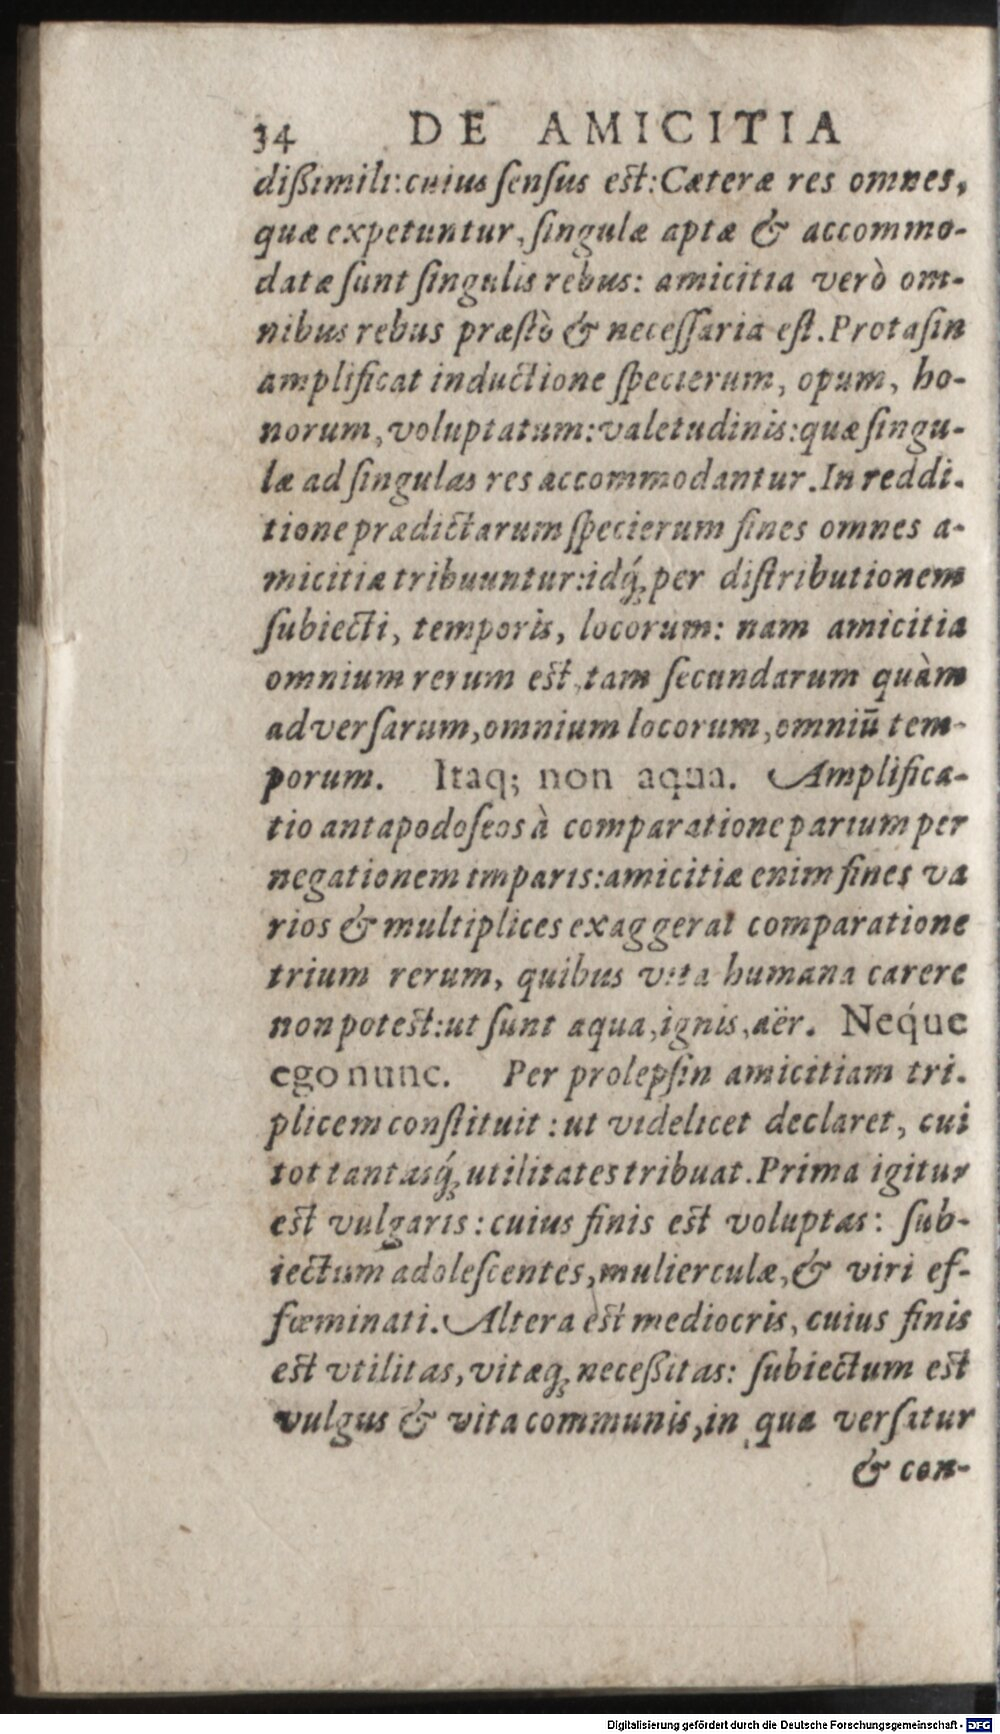 34 DE AMICITIA
dißimili: cuius ſenſus est: Cæteræ res omnes,
quæ expetuntur, ſingulæ aptæ & accommo-
datæ ſunt ſingulis rebus: amicitia verò om-
nibus rebus præſtò & neceſſaria eſt. Protaſin
amplificat inductione ſpecierum, opum, ho-
norum, voluptatum: valetudinis: quæ ſingu-
læ ad ſingulas res accommodantur. In reddi-
tione prædictarum ſpecierum fines omnes a-
micitiæ tribuuntur: idq́; per diſtributionem
ſubiecti, temporis, locorum: nam amicitia
omnium rerum est, tam ſecundarum quàm
adverſarum, omnium locorum, omniū tem-
porum. Itaq; non aqua. Amplifica-
tio antapodoſeos à comparatione parium per
negationem imparis: amicitiæ enim fines va
rios & multiplices exaggerat comparatione
trium rerum, quibus vita humana carere
non potest: ut ſunt aqua, ignis, aër. Neq́ue
ego nunc. Per prolepſin amicitiam tri-
plicem conſtituit: ut videlicet declaret, cui
tot tantasq́; utilitates tribuat. Prima igitur
est vulgaris: cuius finis est voluptas: ſub-
iectum adoleſcentes, mulierculæ, & viri ef-
fœminati. Altera est mediocris, cuius finis
est vtilitas, vitæq; neceßitas: ſubiectum est
vulgus & vita communis, in qua verſatur
& con-
Digitalisierung gefördert durch die Deutsche Forschungsgemeinschaft - DFG